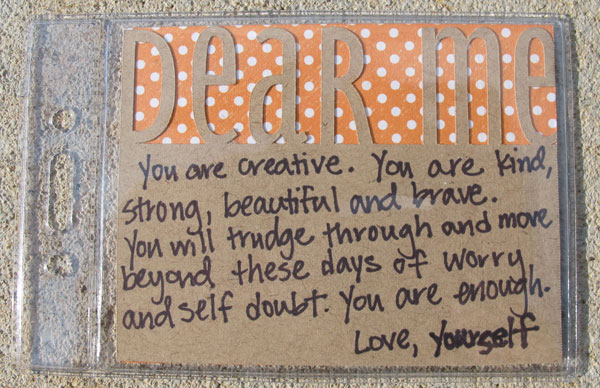 DeaR me
You are creative. You are kind,
strong, beautiful and brave.
You will trudge through and move
beyond these days of worry
and self doubt. You are enough.
Love, yourself